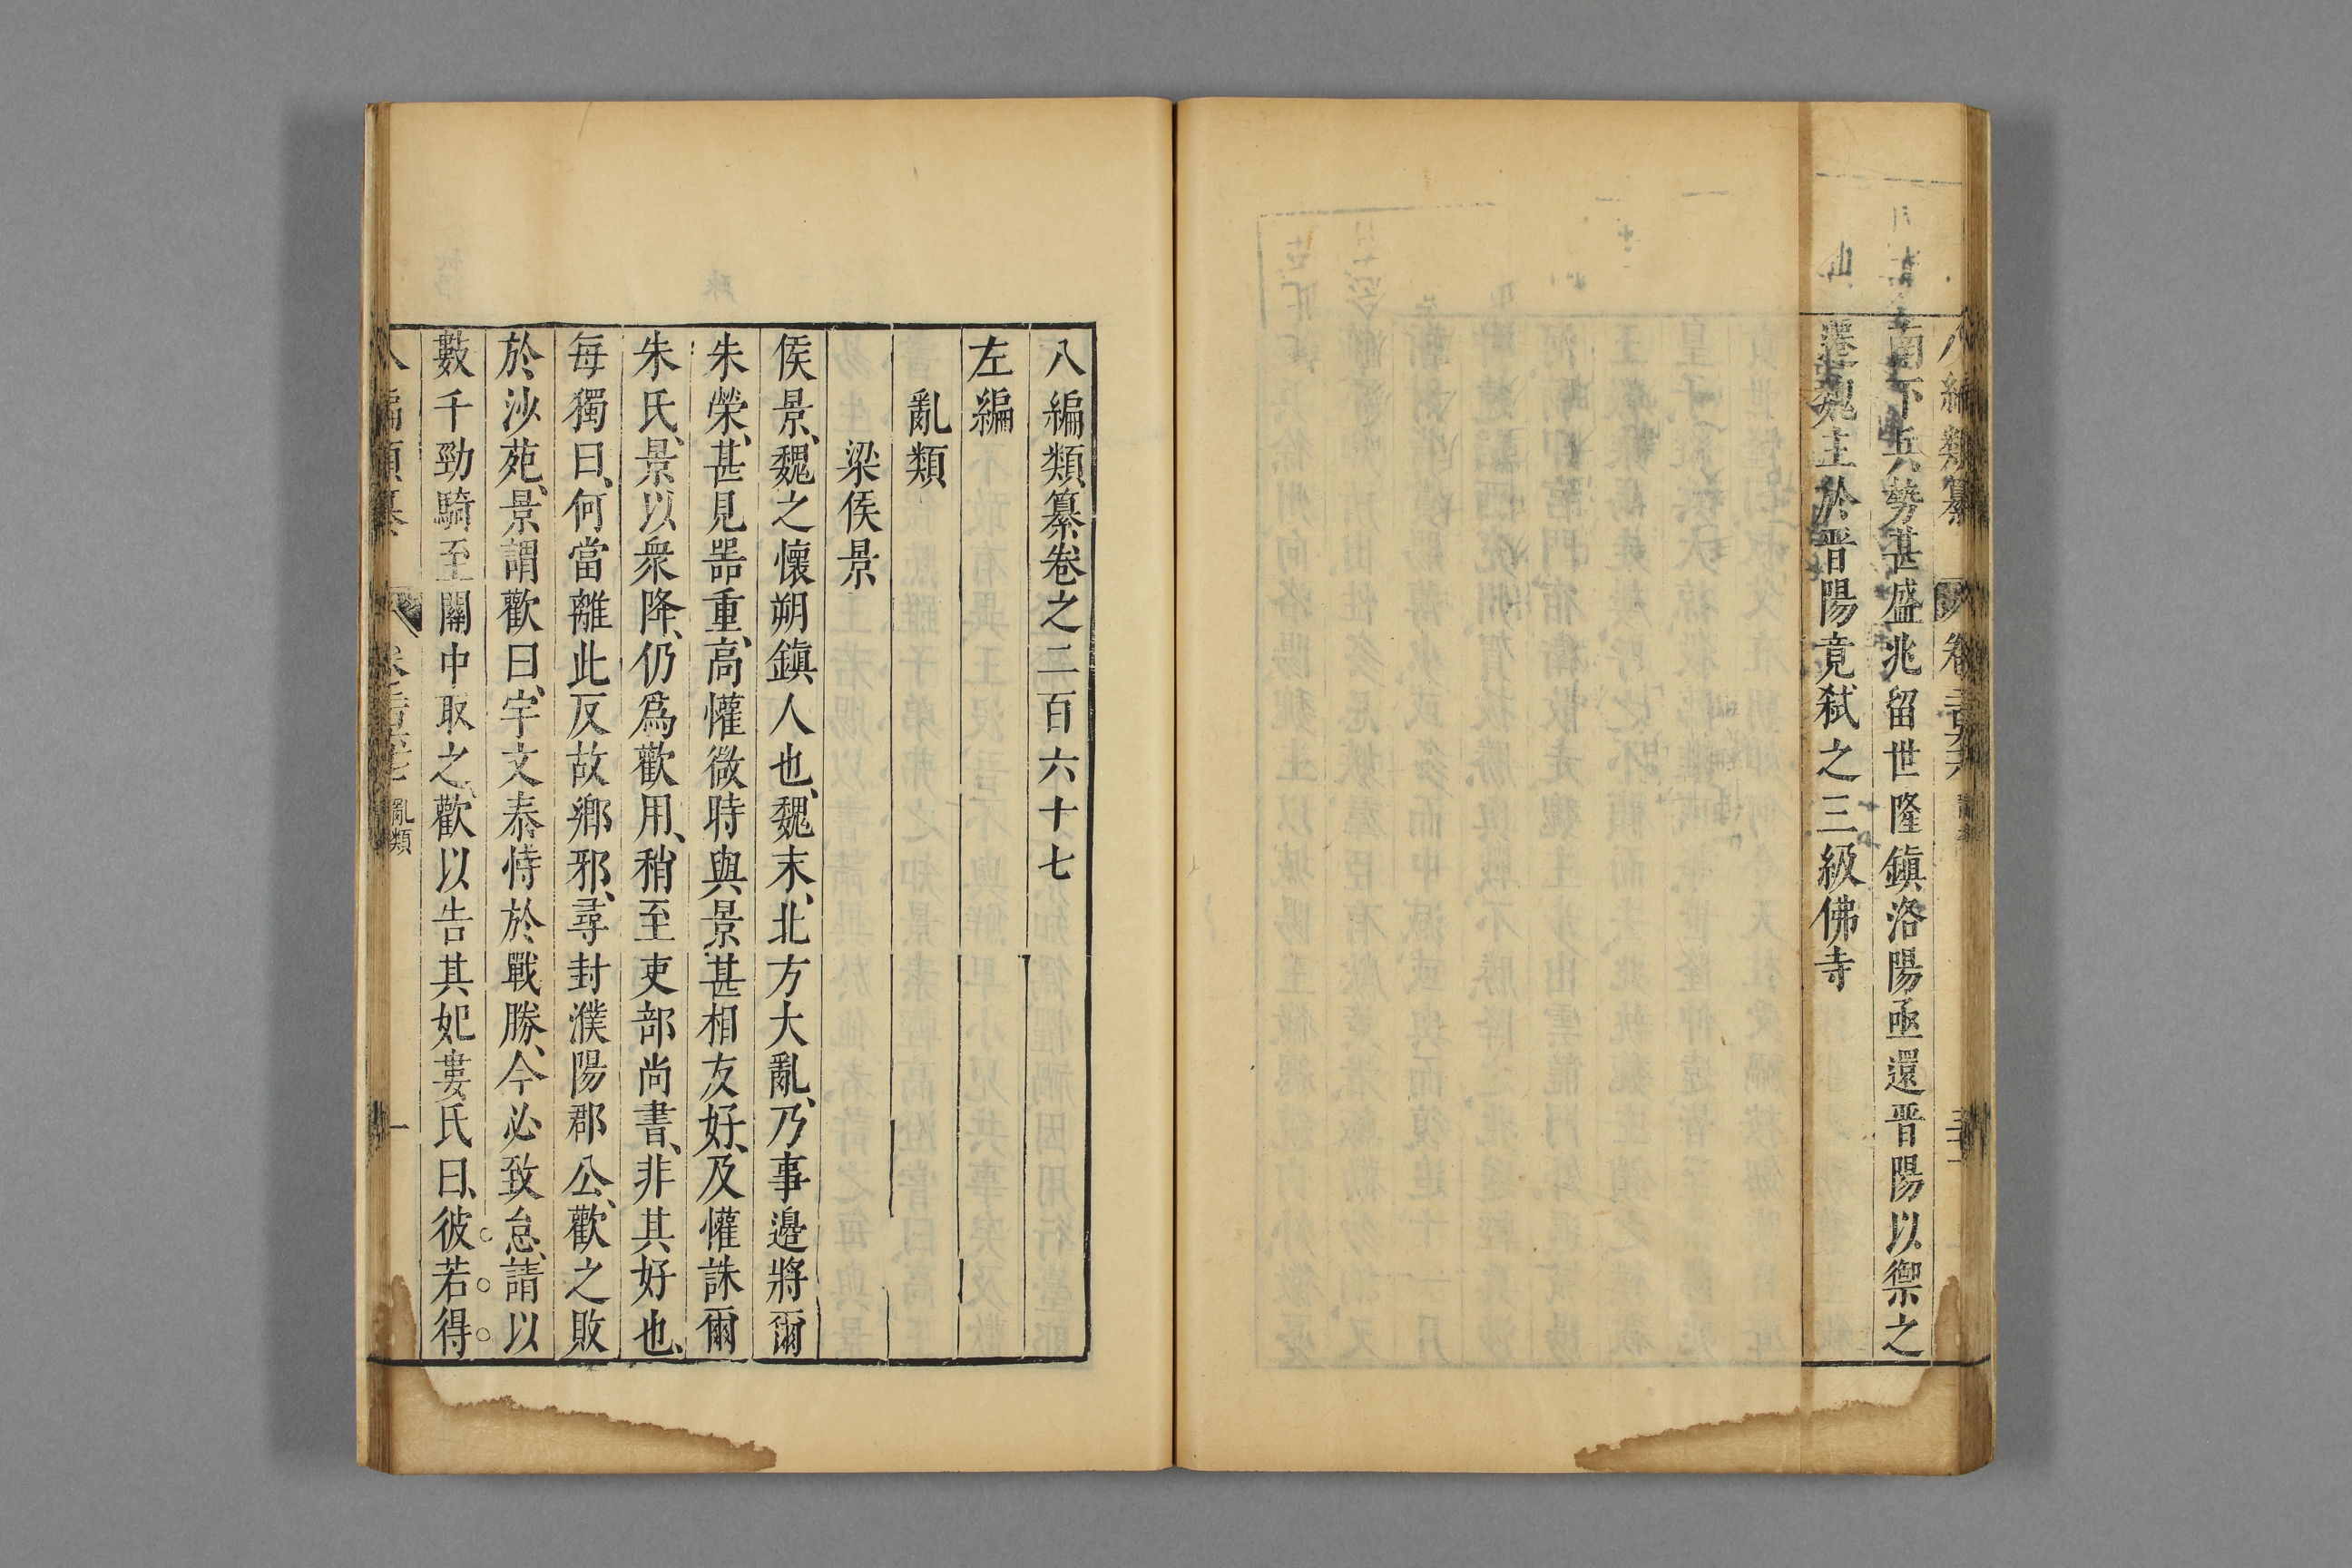 南下兵勢甚盛兆留世隆鎮洛陽亟還晋陽以禦之
遷魏主於晋陽竟弑之三級佛寺
八編類纂卷之二百六十七
左編
亂類
梁侯景
侯景、魏之懷朔鎮人也、魏末、北方大亂、乃事邊將爾
朱榮、甚見器重、高懽微時與景甚相友好、及懽誅爾
朱氏、景以衆降、仍爲歡用、稍至吏部尚書、非其好也、
每獨曰、何當離此反故鄉邪、尋封濮陽郡公、歡之敗
於沙苑、景謂歡曰、宇文泰恃於戰勝、今必致怠、請以
數千勁騎至關中取之、歡以告其妃婁氏曰、彼若得
亂類
一